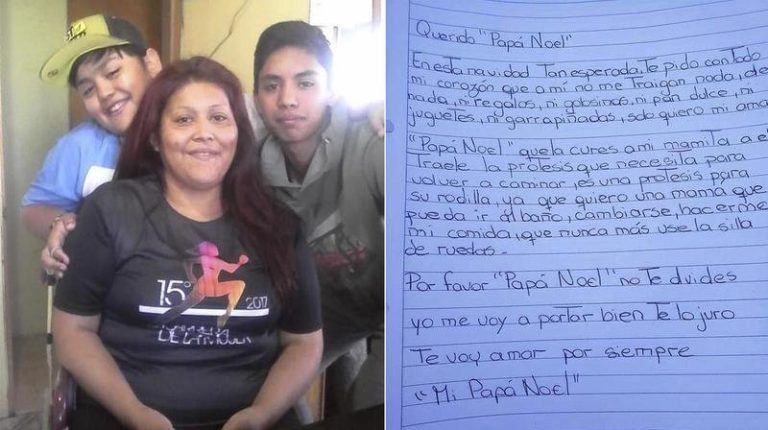 15°
2017
DE LA MUJER
Querido "Papá Noel"
En esta navidad Tan esperada, Te pido con Todo
mi corazón que a mí no me Traigan nada, de
nada, ni regalos, ni golosinas, ni pan dulce, ni
juguetes, ni garrapiñadas, solo quiero mi ama
"Papá Noel" que la cures a mi mamita a el
Traele la protesis que necesita para
volver a caminar, es una protesis para
su rodilla, ya que quiero una mamá que
pueda ir al baño, cambiarse, hacerme
mi comida, que nunca más use la silla
de ruedas.
Por favor "Papá Noel" no Te olvides
yo me voy a portar bien Te lo juro
Te voy amar por siempre
"Mi Papá Noel"